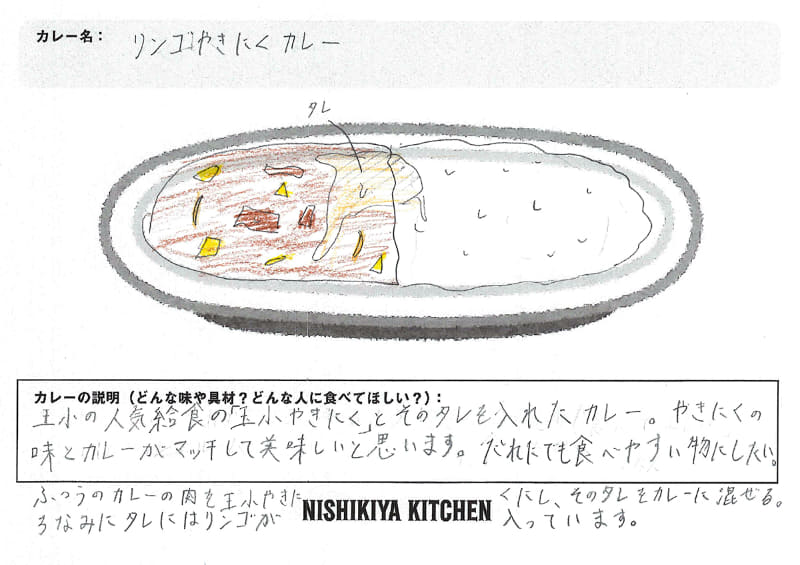 カレー名：リンゴやきにくカレー
タレ
カレーの説明（どんな味や具材？どんな人に食べてほしい？）：
玉小の人気給食の「玉小やきにく」とそのタレを入れたカレー。やきにくの
味とカレーがマッチして美味しいと思います。だれでも食べやすい物にしたい。
ふつうのカレーの肉を玉小やきにくにし、そのタレをカレーに混ぜる。
ちなみにタレにはリンゴが入っています。
NISHIKIYA KITCHEN